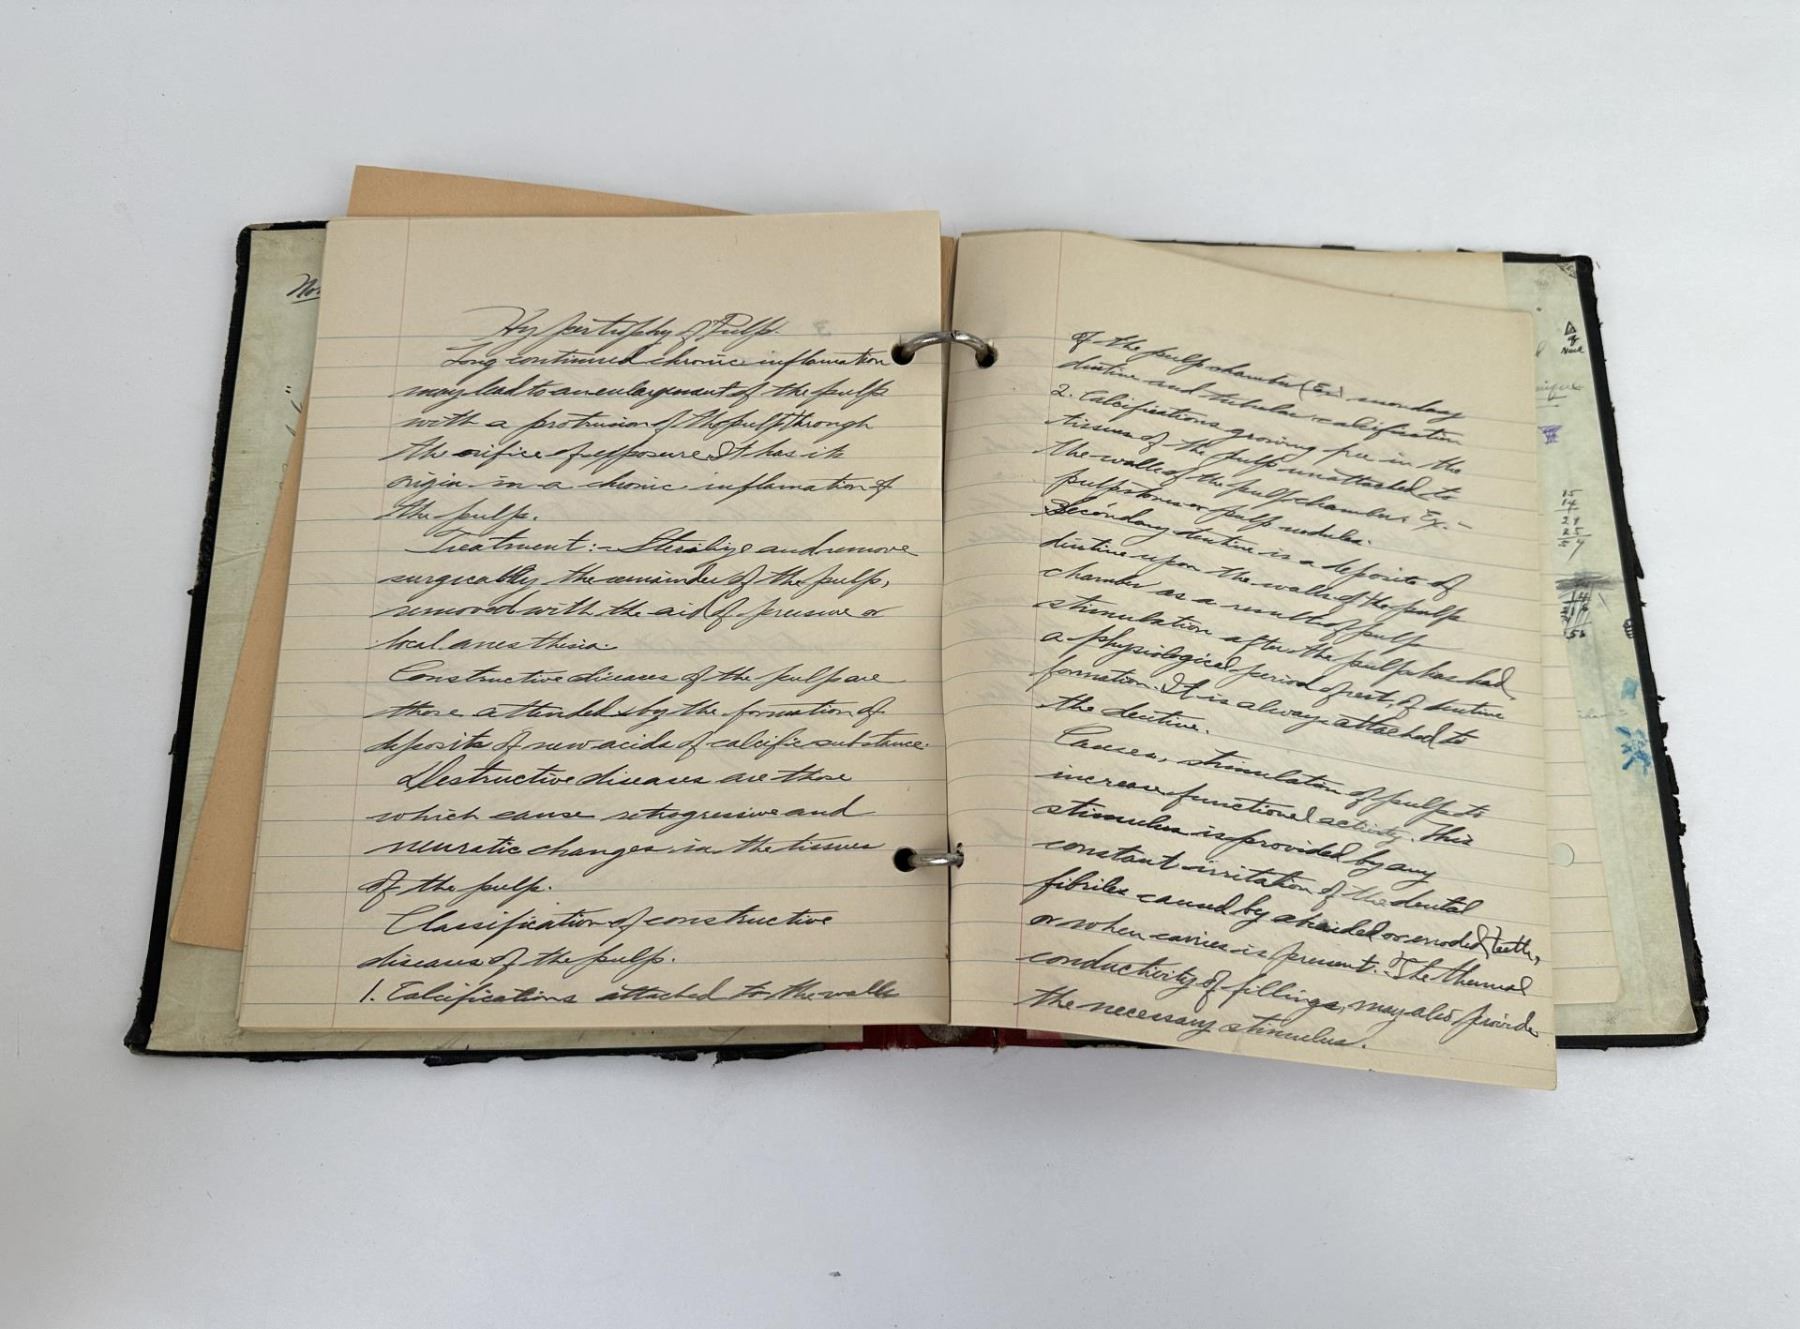 Hypertrophy of Pulp.
Long continued chronic inflamation
may lead to an enlargement of the pulp
with a protrusion of the pulp through
the orifice of exposure. It has its
origin in a chronic inflamation of
the pulp.
Treatment:- Sterilize and remove
surgically the remainder of the pulp,
removed with the aid of pressure or
local anesthesia.
Constructive diseases of the pulp are
those attended by the formation of
deposits of new acids of calcific substance.
Destructive diseases are those
which cause retrogressive and
neuratic changes in the tissues
of the pulp.
Classification of constructive
diseases of the pulp.
1. Calcifications attached to the walls
of the pulp chamber (Ex:) secondary
dentine and tubular calcification
2. Calcifications growing free in the
tissues of the pulp unattached to
the walls of the pulp chamber. Ex.-
pulpstones or pulp nodules.
Secondary dentine is a deposite of
dentine upon the walls of the pulp
chamber as a result of pulp
stimulation after the pulp has had
a physiological period of rest, of dentine
formation. It is always attached to
the dentine.
Causes, stimulation of pulp to
increase functional activity. This
stimulus is provided by any
constant irritation of the dental
fibriles caused by abraided or erroded teeth,
or when carries is present. The thermal
conductivity of fillings, may also provide
the necessary stimulus.
15
14